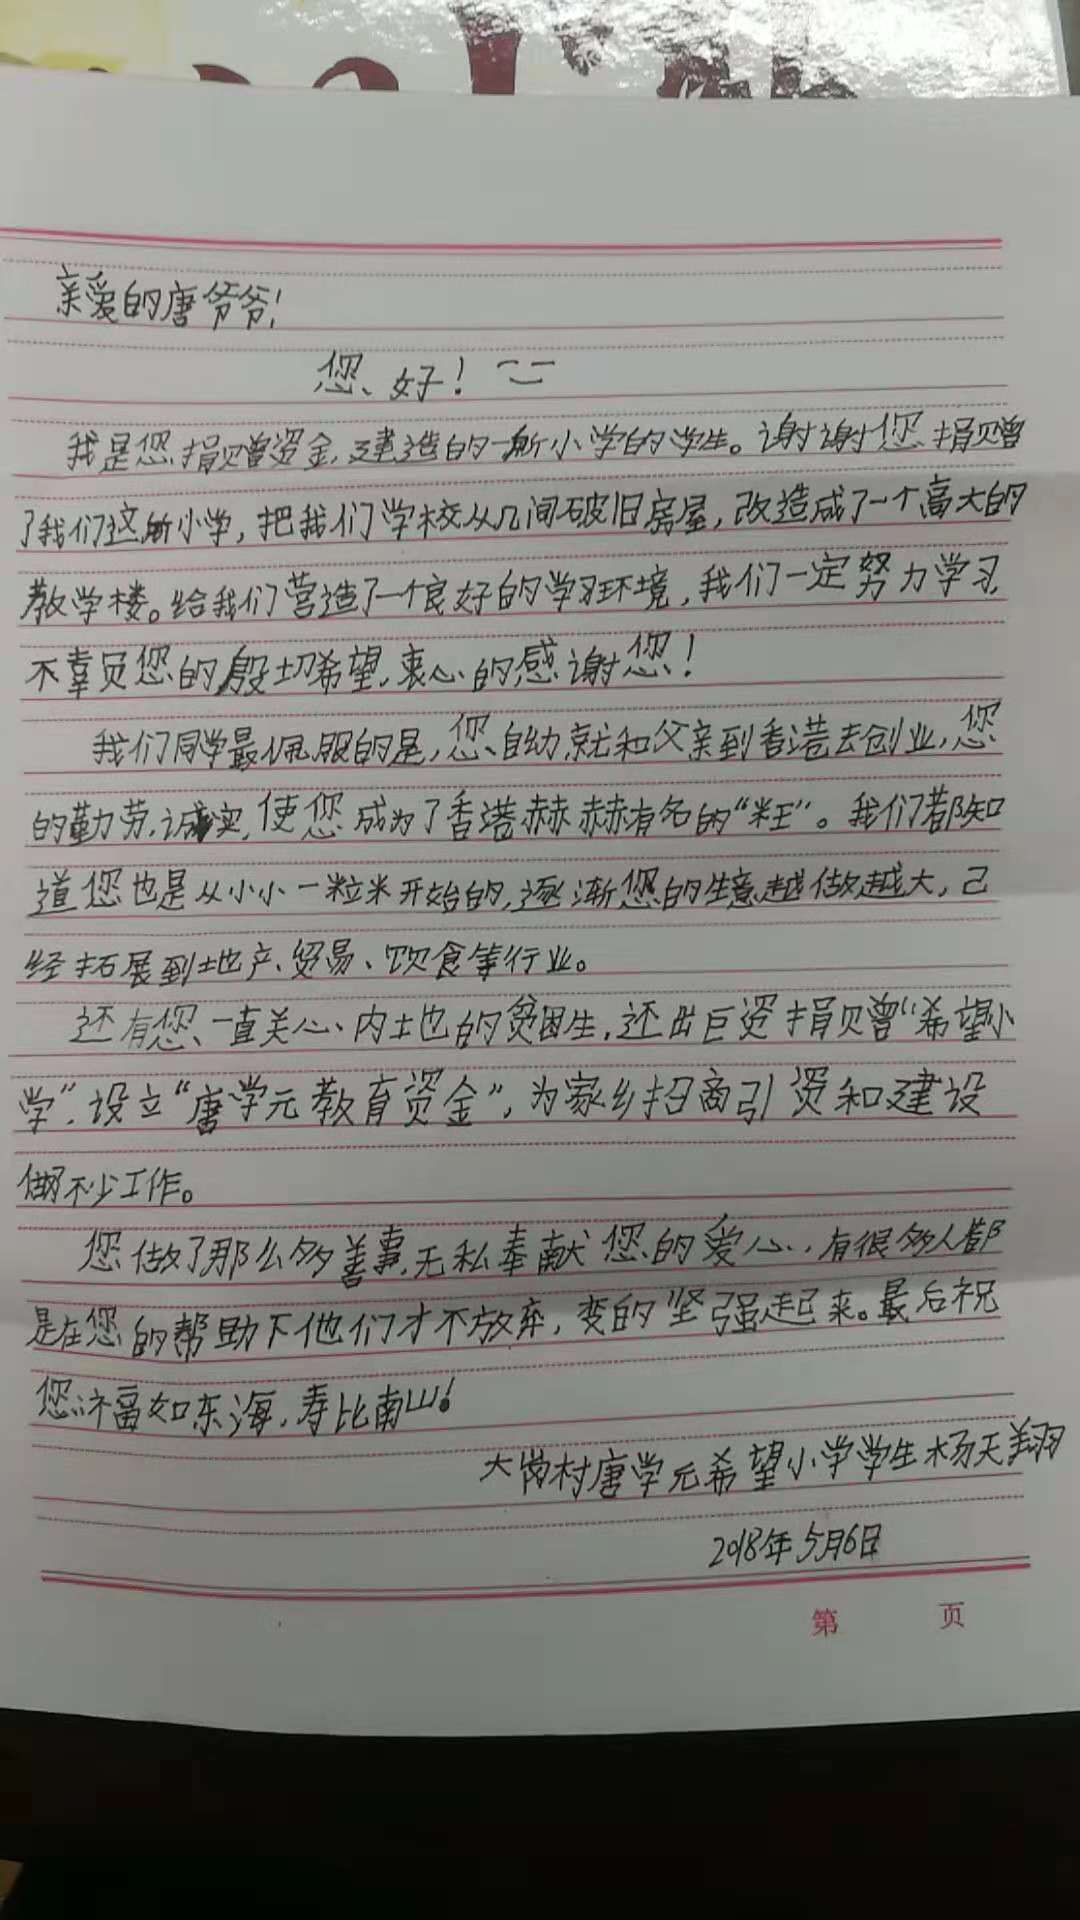 亲爱的唐爷爷!
您、好!
我是您捐赠资金,建造的一所小学的学生。谢谢您捐赠
了我们这所小学,把我们学校从几间破旧房屋,改造成了一个高大的
教学楼。给我们营造了一个良好的学习环境,我们一定努力学习,
不辜负您的殷切希望,衷心的感谢您!
我们同学最佩服的是,您、自幼就和父亲到香港去创业,您
的勤劳,诚实,使您成为了香港赫赫有名的“米王”。我们都知
道您也是从小小一粒米开始的,逐渐您的生意越做越大,已
经拓展到地产、贸易、饮食等行业。
还有您、一直关心、内地的贫困生,还出巨资捐赠“希望小
学”,设立“唐学元教育资金”,为家乡招商引资和建设
做不少工作。
您做了那么多善事,无私奉献您的爱心,有很多人都
是在您的帮助下他们才不放弃,变的坚强起来。最后祝
您福如东海,寿比南山!
大岗村唐学元希望小学学生杨天翔
2018年5月6日
第 页